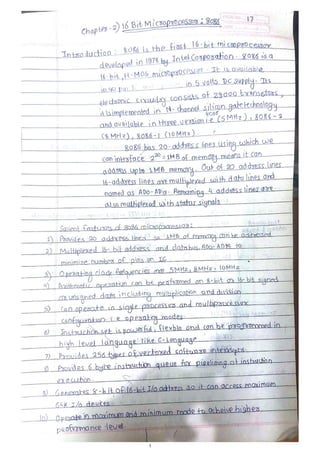 Chapter-2) 16 Bit Microprocessor : 8086
17
Introduction : 8086 is the first 16-bit microprocessor
developed in 1978 by Intel Corporation. 8086 is a
16 bit, H-MOS microprocessor. It is available
in 40 pin in 5 volts DC supply. Its
electronic circuitry consists of 29000 transistors,
& implemented in silicon gate technology
and available in three version i.e. 8086 (5 MHz), 8086-2
(8 MHz), 8086-1 (10 MHz)
8086 has 20-address lines using which we
can interface 2²⁰ = 1MB of memory means it can
address upto 1MB memory. Out of 20 address lines
16-address lines are multiplexed with data lines and
named as AD0-AD15. Remaining 4 address lines are
also multiplexed with status signals.
Salient features of 8086 microprocessor:
1) Provides 20 address lines so 1MB of memory can be addressed
2) Multiplexed 16-bit address and databus AD0-AD15 to
minimize number of pins on IC
3) Operating clock frequencies are 5MHz, 8MHz, 10MHz
4) Arithmetic operation can be performed on 8-bit or 16-bit signed
or unsigned data including multiplication and division
5) Can operate in single processor and multiprocessor
configuration i.e operating modes
6) Instruction set is powerful, flexible and can be programmed in
high level language like C-Language
7) Provides 256 types of vectored software interrupts
8) Provides 6 byte instruction queue for pipelining of instruction
execution
9) Generates 8-bit or 16-bit I/o address so it can access maximum
64K I/o devices
10) Operate in maximum and minimum mode to acheive higher
performance level
1